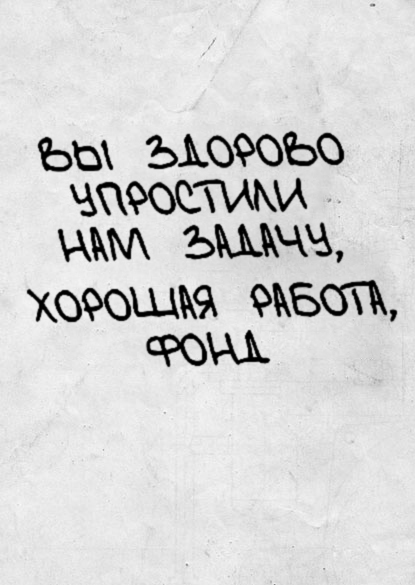 ВЫ ЗДОРОВО
УПРОСТИЛИ
НАМ ЗАДАЧУ,
ХОРОШАЯ РАБОТА,
ФОНД